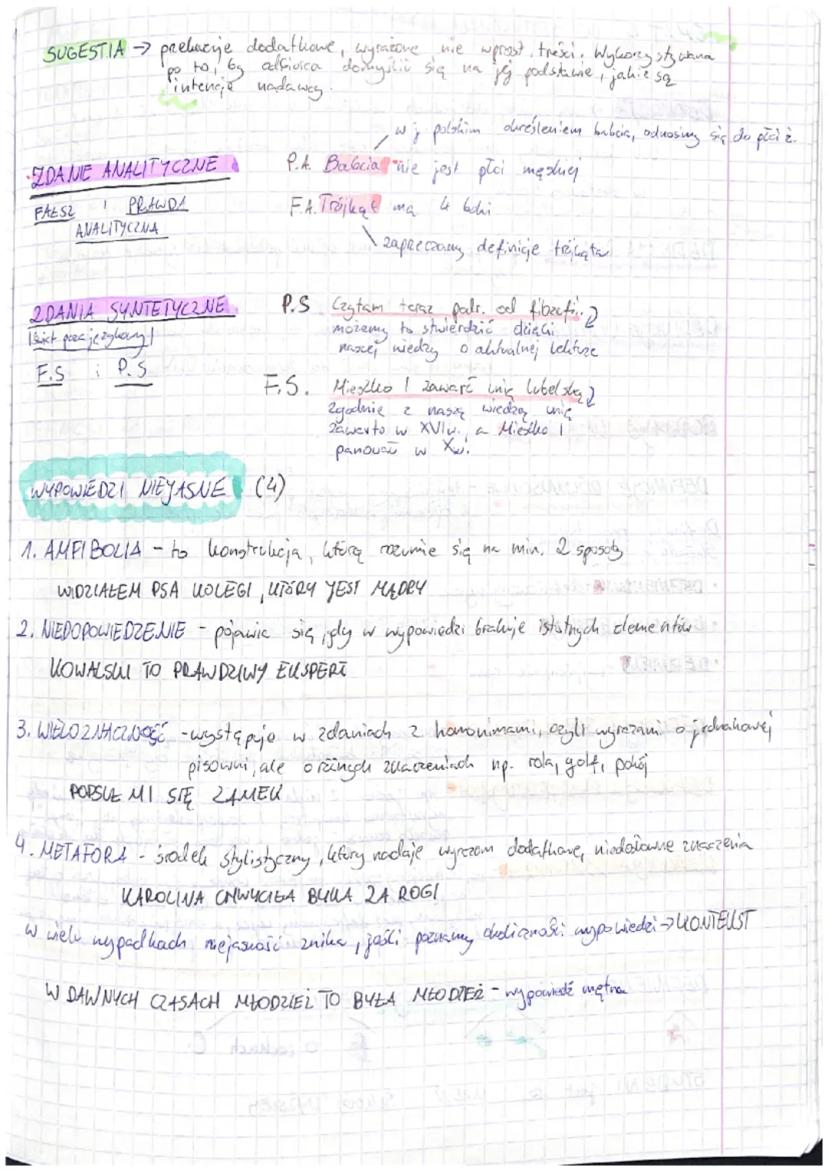 SUGESTIA → przekazuje dodatkowe, wyrażone nie wprost treści. Wykorzystywana
po to, by odbiorca domyślił się na jej podstawie, jakie są
intencje nadawcy.
w j. polskim określeniem babcia, odnosimy się do płci ż.
ZDANIE ANALITYCZNE
P.A. Babcia nie jest płci męskiej
FAŁSZ i PRAWDA
ANALITYCZNA
F.A. Trójkąt ma 4 boki
zaprzeczamy definicję trójkąta
ZDANIA SYNTETYCZNE
P.S Czytam teraz podr. od filozofi..
|świat pozajęzykowy|
możemy to stwierdzić dzięki
naszej wiedzy o aktualnej lekturze
F.S i P.S
F.S. Mieszko I zawarł unię lubelską
zgodnie z naszą wiedzą unię
zawarto w XVI w. a Mieszko I
panował w X w.
WYPOWIEDZI NIEJASNE (4)
1. AMFIBOLIA - to konstrukcja, którą rozumie się na min. 2 sposoby
WIDZIAŁEM PSA KOLEGI, KTÓRY JEST MĄDRY
2. NIEDOPOWIEDZENIE - pojawia się, gdy w wypowiedzi brakuje istotnych elementów
KOWALSKI TO PRAWDZIWY EKSPERT
3. WIELOZNACZNOŚĆ - występuje w zdaniach z homonimami, czyli wyrazami o jednakowej
pisowni, ale o różnych znaczeniach np. rola, golf, pokój
POPSUŁ MI SIĘ ZAMEK
4. METAFORA - środek stylistyczny, który nadaje wyrazom dodatkowe, niedosłowne znaczenia
KAROLINA CHWYCIŁA BYKA ZA ROGI
W wielu wypadkach niejasność znika, jeśli poznamy okoliczności wypowiedzi → KONTEKST
W DAWNYCH CZASACH MŁODZIEŻ TO BYŁA MŁODZIEŻ - wypowiedź mętna